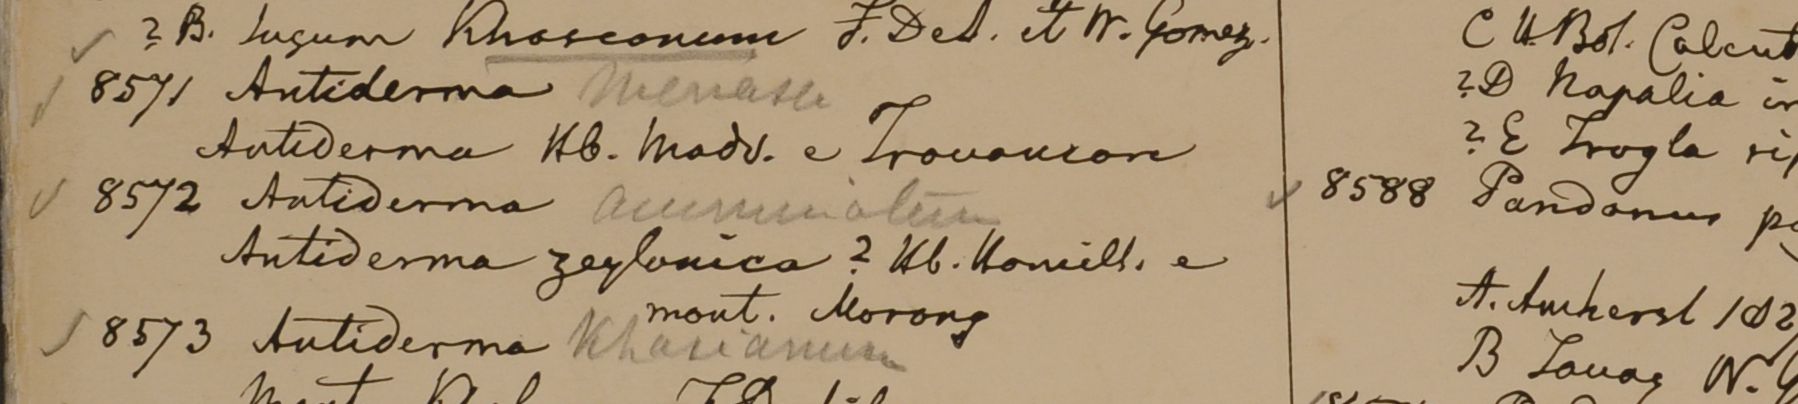 ? B. Jugum Khaseanum F. Ded. et W. Gomez.
8571 Antiderma Menasu
Antiderma Hb. Madr. e Travancore
8572 Antiderma acuminatum
Antiderma zeylanica ? Hb. Hamilt. e
mont. Morong
8573 Antiderma Khasianum
C H. Bot. Calcut
? D Napalia in
? E Trogla
8588 Pandanus
A. Amherst 182
B Tavoy W. G